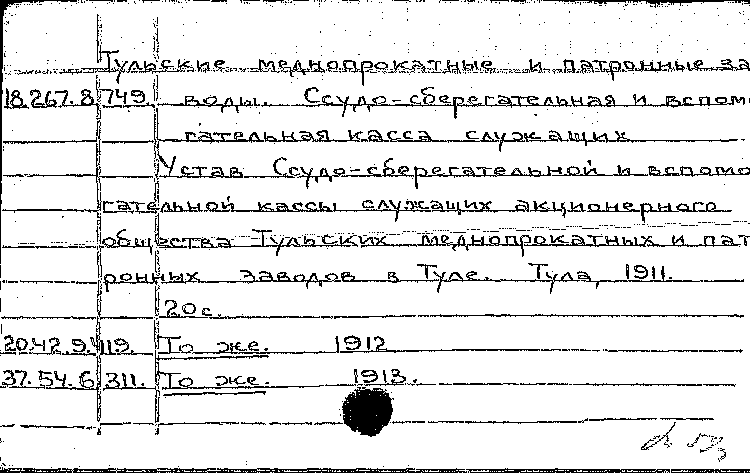 Тульские меднопрокатные и патронные за
18.267.8.749. воды. Ссудо-сберегательная и вспомо
гательная касса служащих
Устав Ссудо-сберегательной и вспомо
гательной кассы служащих акционерного
общества Тульских меднопрокатных и пат
ронных заводов в Туле. Тула, 1911.
20 с.
20.42.9.419. То же. 1912
37.54.6.311. То же. 1913.